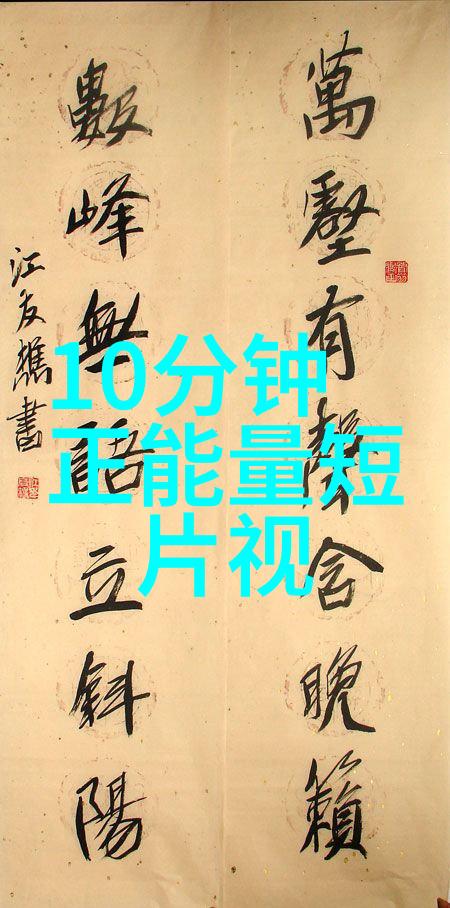 萬壑有聲含晚籟
數峰無語立斜陽
江友樵書
10分钟
正能量短
片视